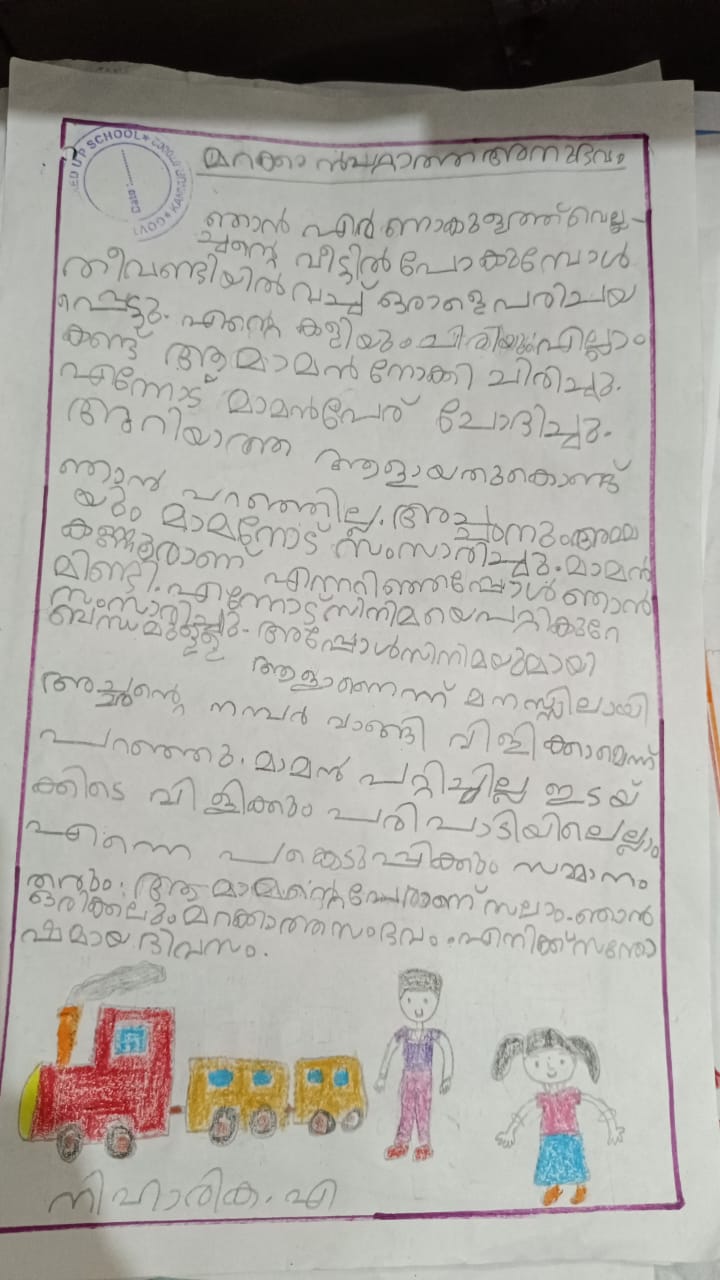 മറക്കാൻ പറ്റാത്ത അനുഭവം
ഞാൻ എർണാകുളത്ത് വെല്ല്യ-
ച്ചന്റെ വീട്ടിൽ പോകുമ്പോൾ
തീവണ്ടിയിൽ വച്ച് ഒരാളെ പരിചയ
പ്പെട്ടു. എന്റെ കളിയും ചിരിയും എല്ലാം
കണ്ട് ആ മാമൻ നോക്കി ചിരിച്ചു.
എന്നോട് മാമൻ പേര് ചോദിച്ചു.
അറിയാത്ത ആളായതുകൊണ്ട്
ഞാൻ പറഞ്ഞില്ല. അച്ഛനും അമ്മ
യും മാമനോട് സംസാരിച്ചു. മാമൻ
കണ്ണൂരാണ് എന്നറിഞ്ഞപ്പോൾ ഞാൻ
മിണ്ടി. എന്നോട് സിനിമയെ പറ്റി കുറേ
സംസാരിച്ചു. അപ്പോൾ സിനിമയുമായി
ബന്ധമുള്ള ആളാണെന്ന് മനസ്സിലായി
അച്ഛന്റെ നമ്പർ വാങ്ങി വിളിക്കാമെന്ന്
പറഞ്ഞു. മാമൻ പറ്റിച്ചില്ല ഇടയ്
ക്കിടെ വിളിക്കും പരിപാടിയിലെല്ലാം
എന്നെ പങ്കെടുപ്പിക്കും സമ്മാനം
തരും. ആ മാമന്റെ പേരാണ് സലാം. ഞാൻ
ഒരിക്കലും മറക്കാത്ത സംഭവം. എനിക്ക് സന്തോ
ഷമായ ദിവസം.
നിഹാരിക. എ